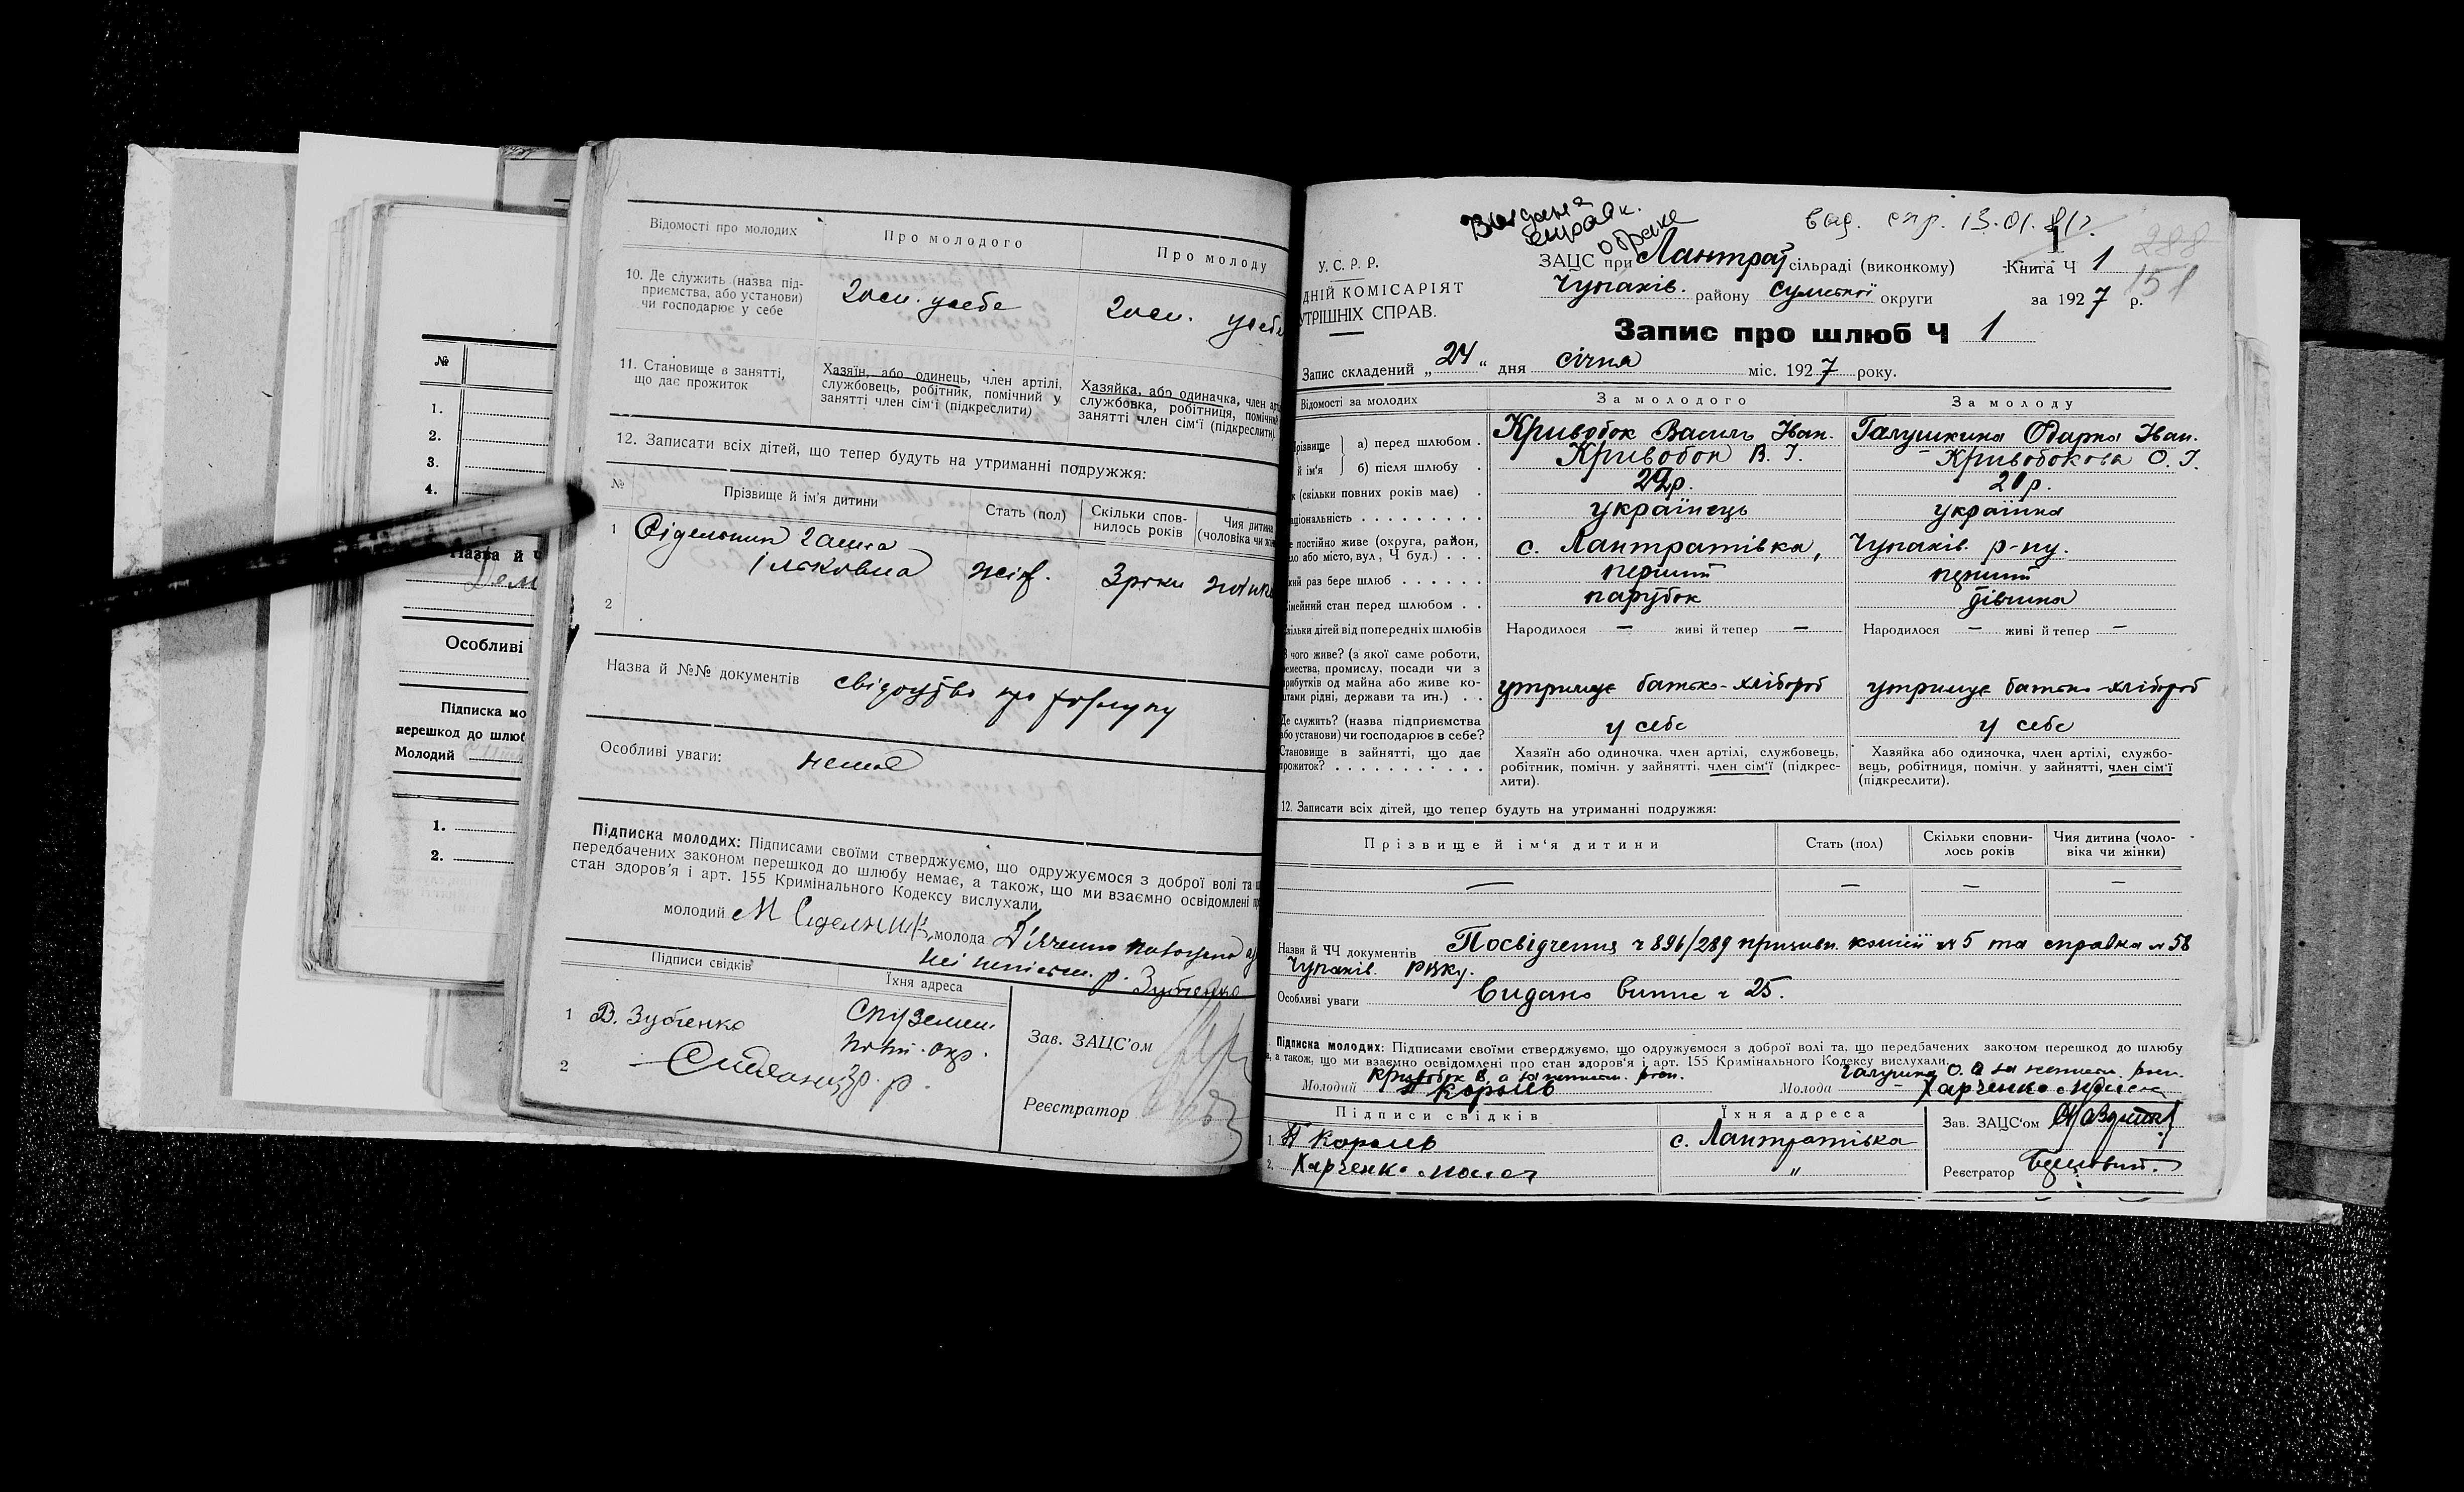 №
1.
2.
3.
4.
Назва й ч
Дем
Особливі
Підписка мо
перешкод до шлюб
Молодий
1.
2.
Відомості про молодих
Про молодого
Про молоду
10. Де служить (назва під-
приємства, або установи)
чи господарює у себе
Госп. у себе
Госп. у себе
11. Становище в занятті,
що дає прожиток
Хазяїн, або одинець, член артілі,
службовець, робітник, помічний у
занятті член сім'ї (підкреслити)
Хазяйка, або одиначка, член арт
службовка, робітниця, помічни
занятті член сім'ї (підкреслити)
12. Записати всіх дітей, що тепер будуть на утриманні подружжя:
№
Прізвище й ім'я дитини
Стать (пол)
Скільки спов-
нилось років
Чия дитина
(чоловіка чи жін
1
Сідельник Гашка
жін.
3 роки
2
Назва й №№ документів
свідоцтво про
Особливі уваги:
немає
Підписка молодих: Підписами своїми стверджуємо, що одружуємося з доброї волі та
передбачених законом перешкод до шлюбу немає, а також, що ми взаємно освідомлені
стан здоров'я і арт. 155 Кримінального Кодексу вислухали.
молодий М Сідельник, молода
р. Зубченко
Підписи свідків
Їхня адреса
1 В. Зубченко
2
Зав. ЗАЦС'ом
Реєстратор
Видана
справк.
о браке
вид. спр. 13.01.81г.
1
288
151
У.С.Р.Р.
ДНІЙ КОМІСАРІЯТ
УТРІШНІХ СПРАВ.
ЗАЦС при Лантрат сільраді (виконкому)
Книга Ч 1
Чупахів. району Сумської округи
за 1927 р.
Запис про шлюб Ч 1
Запис складений „24“ дня січня міс. 1927 року.
Відомості за молодих
За молодого
За молоду
різвище й ім'я
а) перед шлюбом
Кривобок Василь Іван.
Галушкина Одарка Іван.
б) після шлюбу
Кривобок В. І.
Кривобокова О. І.
к (скільки повних років має)
22р.
21р.
аціональність
українець
українка
е постійно живе (округа, район,
ло або місто, вул, Ч буд.)
с. Лантратівка,
Чупахів. р-ну.
кий раз бере шлюб
перший
перший
імейний стан перед шлюбом
парубок
дівчина
кільки дітей від попередніх шлюбів
Народилося — живі й тепер —
Народилося — живі й тепер —
чого живе? (з якої саме роботи,
емества, промислу, посади чи з
рибутків од майна або живе ко-
штами рідні, держави та ин.)
утримує батько-хлібороб
утримує батько-хлібороб
Де служить? (назва підприємства
або установи) чи господарює в себе?
у себе
у себе
Становище в зайнятті, що дає
прожиток?
Хазяїн або одиночка, член артілі, службовець,
робітник, помічн. у зайнятті, член сім'ї (підкрес-
лити).
Хазяйка або одиночка, член артілі, службо-
вець, робітниця, помічн. у зайнятті, член сім'ї
(підкреслити).
12. Записати всіх дітей, що тепер будуть на утриманні подружжя:
Прізвище й ім'я дитини
Стать (пол)
Скільки сповни-
лось років
Чия дитина (чоло-
віка чи жінки)
— — — —
Назви й ЧЧ документів Посвідчення ч 896/289 призивн. комісії ч 5 та справка ч 58
Чупахів. РВКу.
Особливі уваги Видано випис ч 25.
Підписка молодих: Підписами своїми стверджуємо, що одружуємося з доброї волі та, що передбачених законом перешкод до шлюбу
а також, що ми взаємно освідомлені про стан здоров'я і арт. 155 Кримінального Кодексу вислухали.
Кривобок В. а за неписьм. розп.
Галушкина О. а за неписьм. розп.
Молодий Король
Молода Харченко
Підписи свідків
Їхня адреса
1. Король
с. Лантратівка
2. Харченко
„
Зав. ЗАЦС'ом
Реєстратор